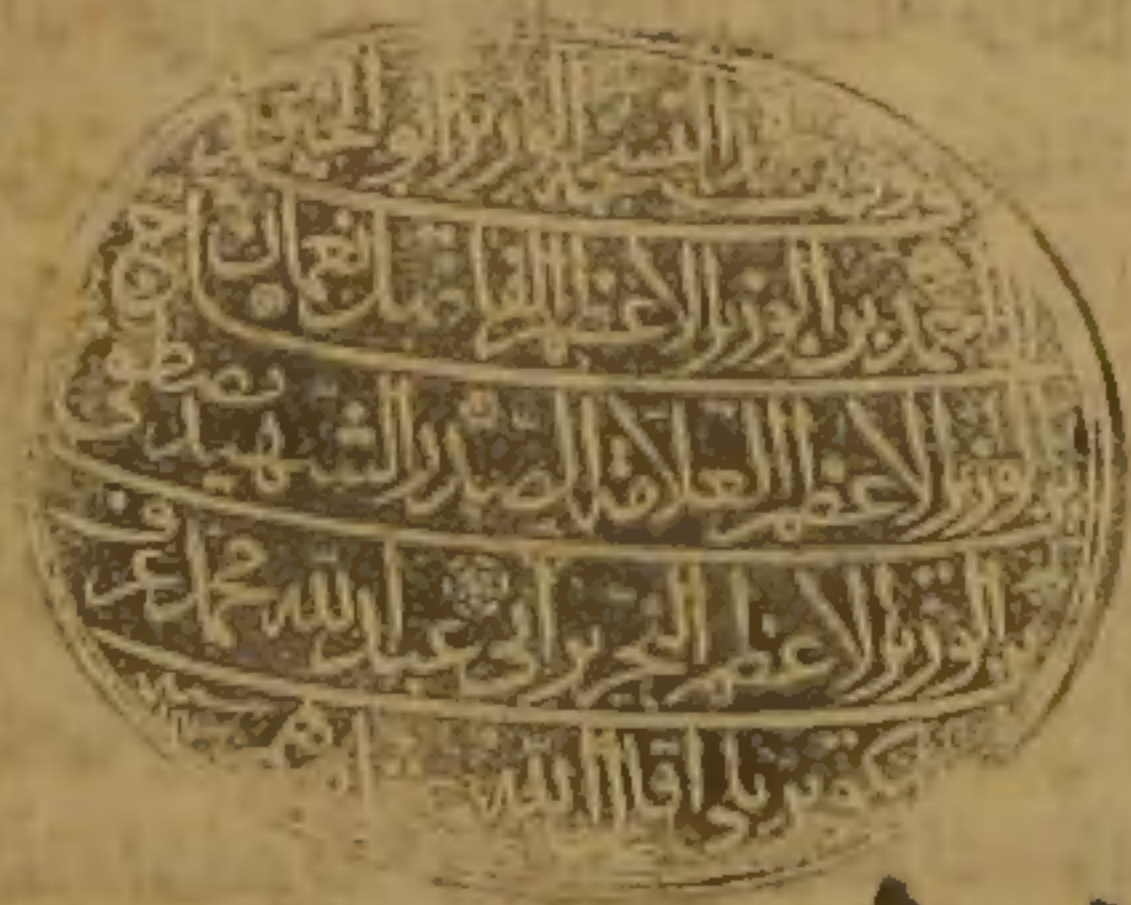 الوزير ابو الخير الحاج
احمد بن الوزير الاعظم الفاضل نعمان
بن الوزير الاعظم العلامة الصدر الشهيد مصطفى
بن الوزير الاعظم النحرير ابى عبد الله محمد عرف
بكوبريلى اقال الله